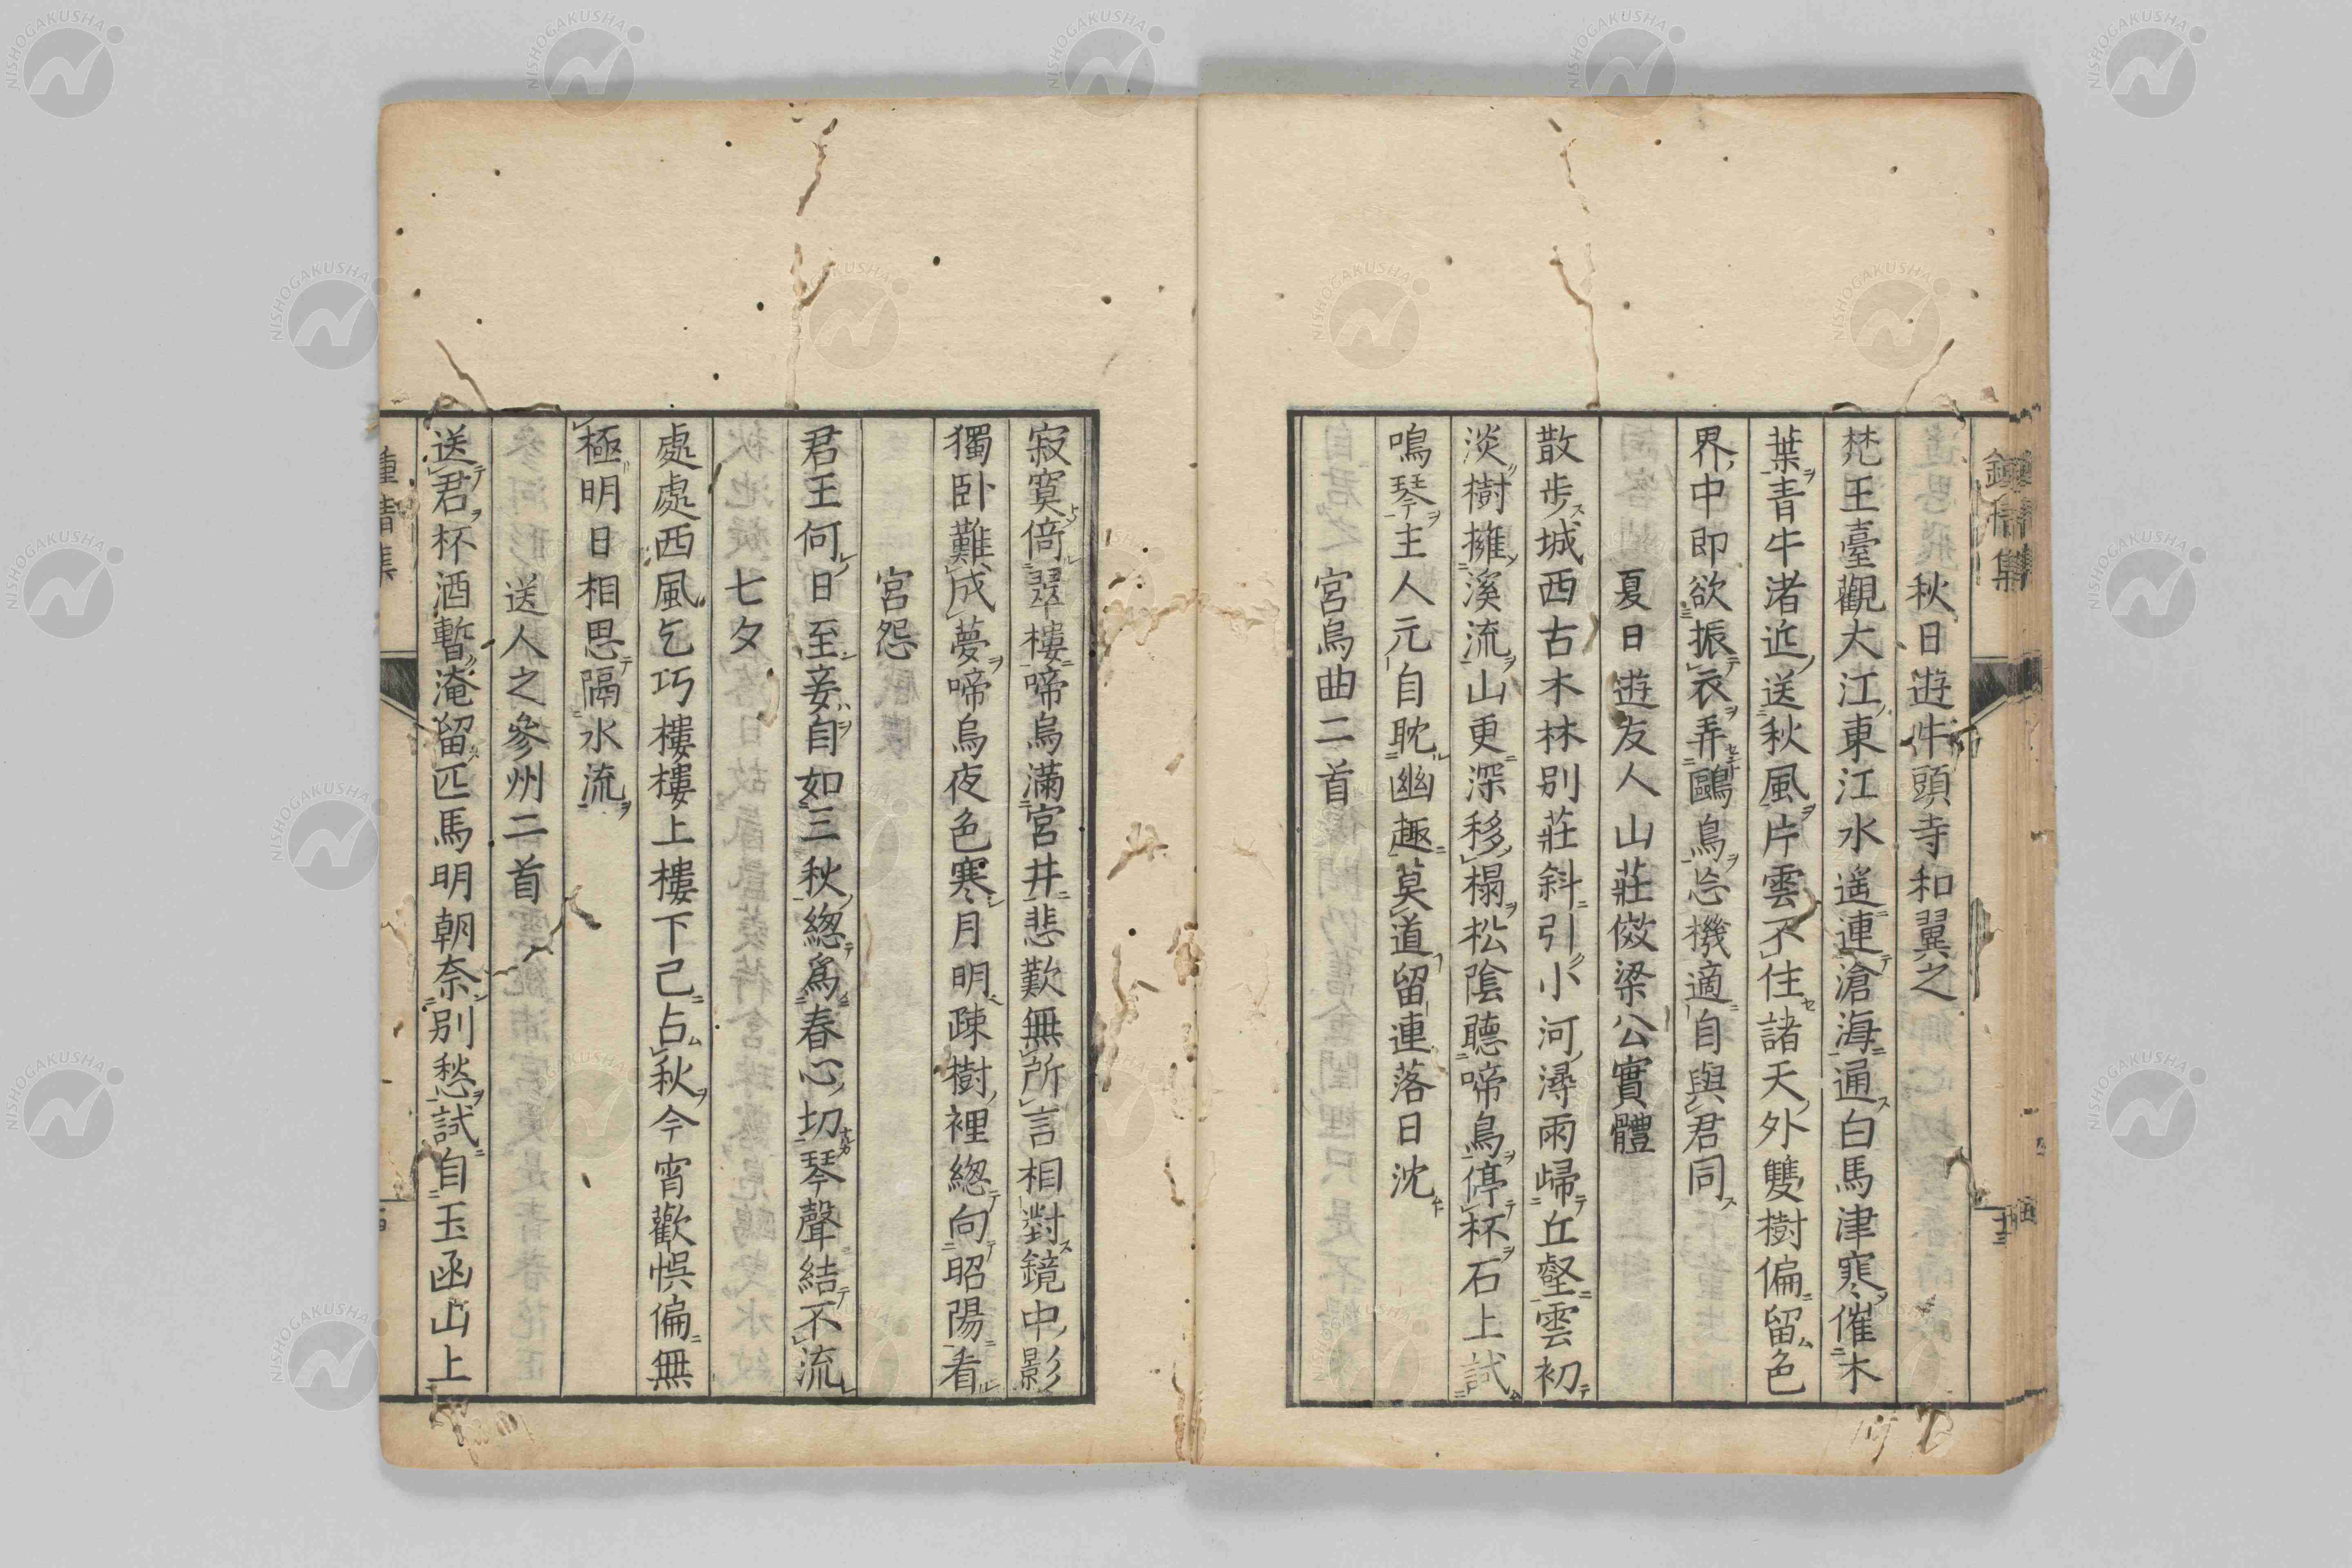 秋日遊牛頭寺和翼之
梵王臺觀大江東江水遥連滄海通白馬津寒催木
葉青牛渚近送秋風片雲不住諸天外雙樹偏留色
界中即欲振衣弄鷗鳥忘機適自與君同
夏日遊友人山莊傚梁公實體
散步城西古木林別莊斜引小河潯雨歸丘壑雲初
淡樹擁溪流山更深移榻松陰聽啼鳥停杯石上試
鳴琴主人元自耽幽趣莫道留連落日沈
宮烏曲二首
寂寞倚翠樓啼烏滿宮井悲歎無所言相對鏡中影
獨臥難成夢啼烏夜色寒月明疎樹裡緫向昭陽看
宮怨
君王何日至妾自如三秋緫爲春心切琴聲結不流
七夕
處處西風乞巧樓樓上樓下已占秋今宵歡悞偏無
極明日相思隔水流
送人之參州二首
送君杯酒暫淹留匹馬明朝奈別愁試自玉函山上
NISHOGAKUSHA